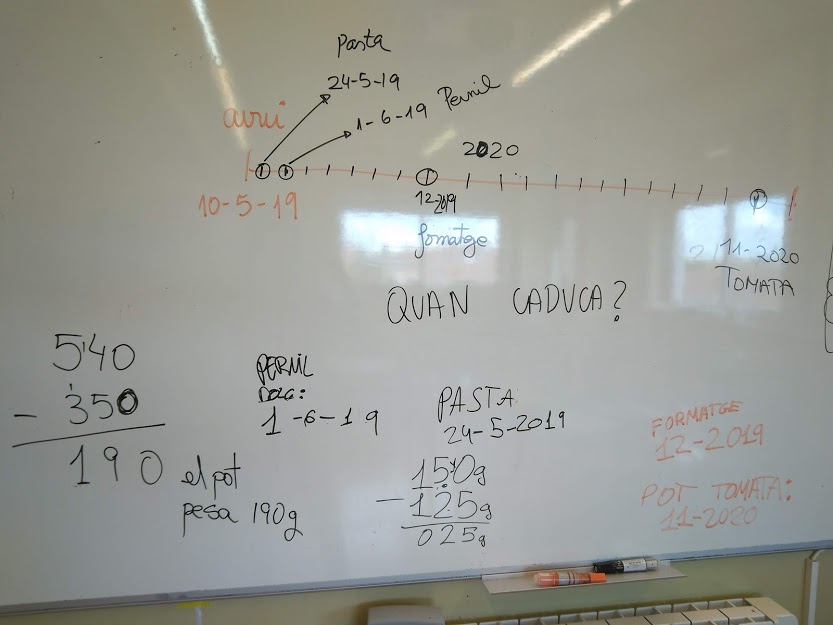 Pasta
24-5-19
1-6-19 Pernil
avui
2020
10-5-19
12-2019
fomatge
11-2020
TOMATA
QUAN CADUCA?
540
- 350
190
el pot
pesa 190g
PERNIL
DOLÇ:
1-6-19
PASTA
24-5-2019
150g
- 125g
025g
FORMATGE
12-2019
POT TOMATA:
11-2020